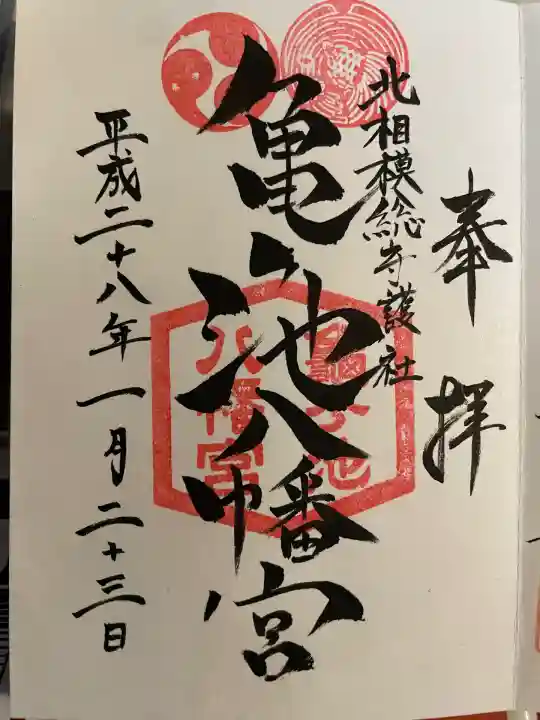 奉拝
北相模総守護社
亀ヶ池八幡宮
亀ヶ池
八幡宮
平成二十八年一月二十三日